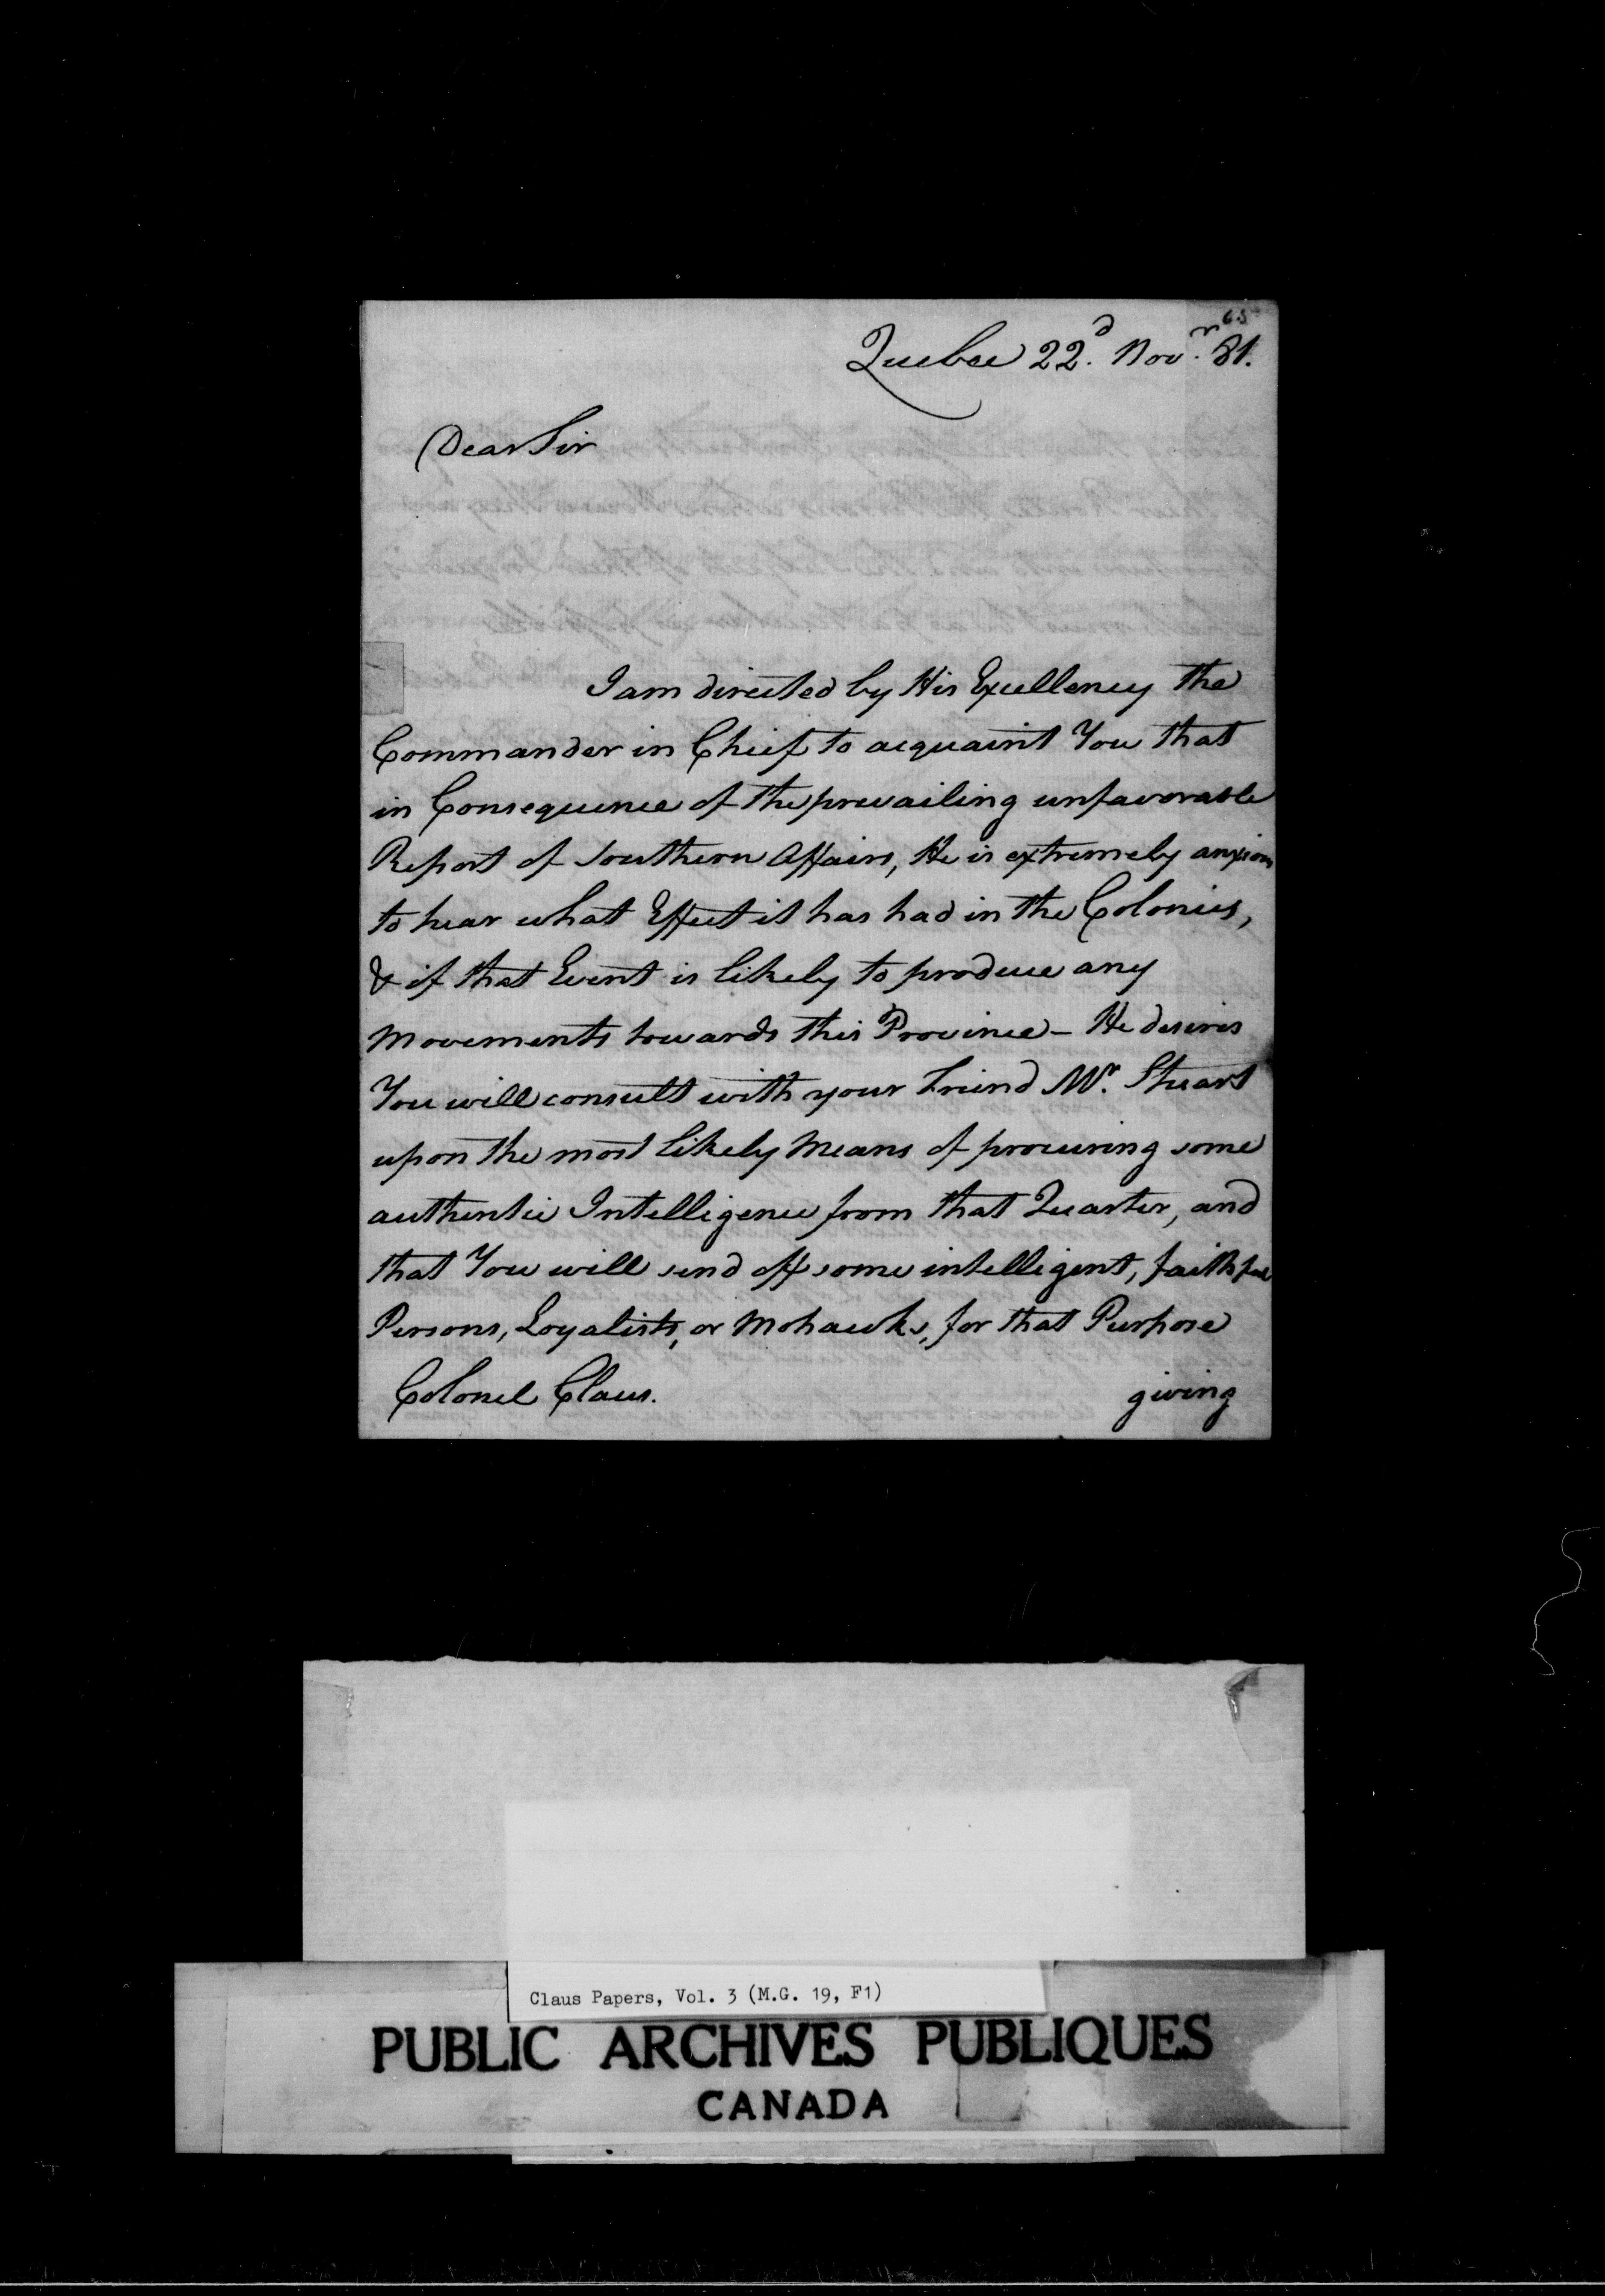 65
Quebec 22d. Novr. 81.
Dear Sir
I am directed by His Excellency the
Commander in Chief to acquaint You that
in Consequence of the prevailing unfavorable
Report of Southern Affairs, He is extremely anxious
to hear what Effect it has had in the Colonies,
& if that Event is likely to produce any
Movements towards this Province - He desires
You will consult with your Friend Mr. Stuart
upon the most likely Means of procuring some
authentic Intelligence from that Quarter, and
that You will send off some intelligent, faithful
Persons, Loyalists, or Mohawks, for that Purpose
Colonel Claus. giving
Claus Papers, Vol. 3 (M.G. 19, F1)
PUBLIC ARCHIVES PUBLIQUES
CANADA